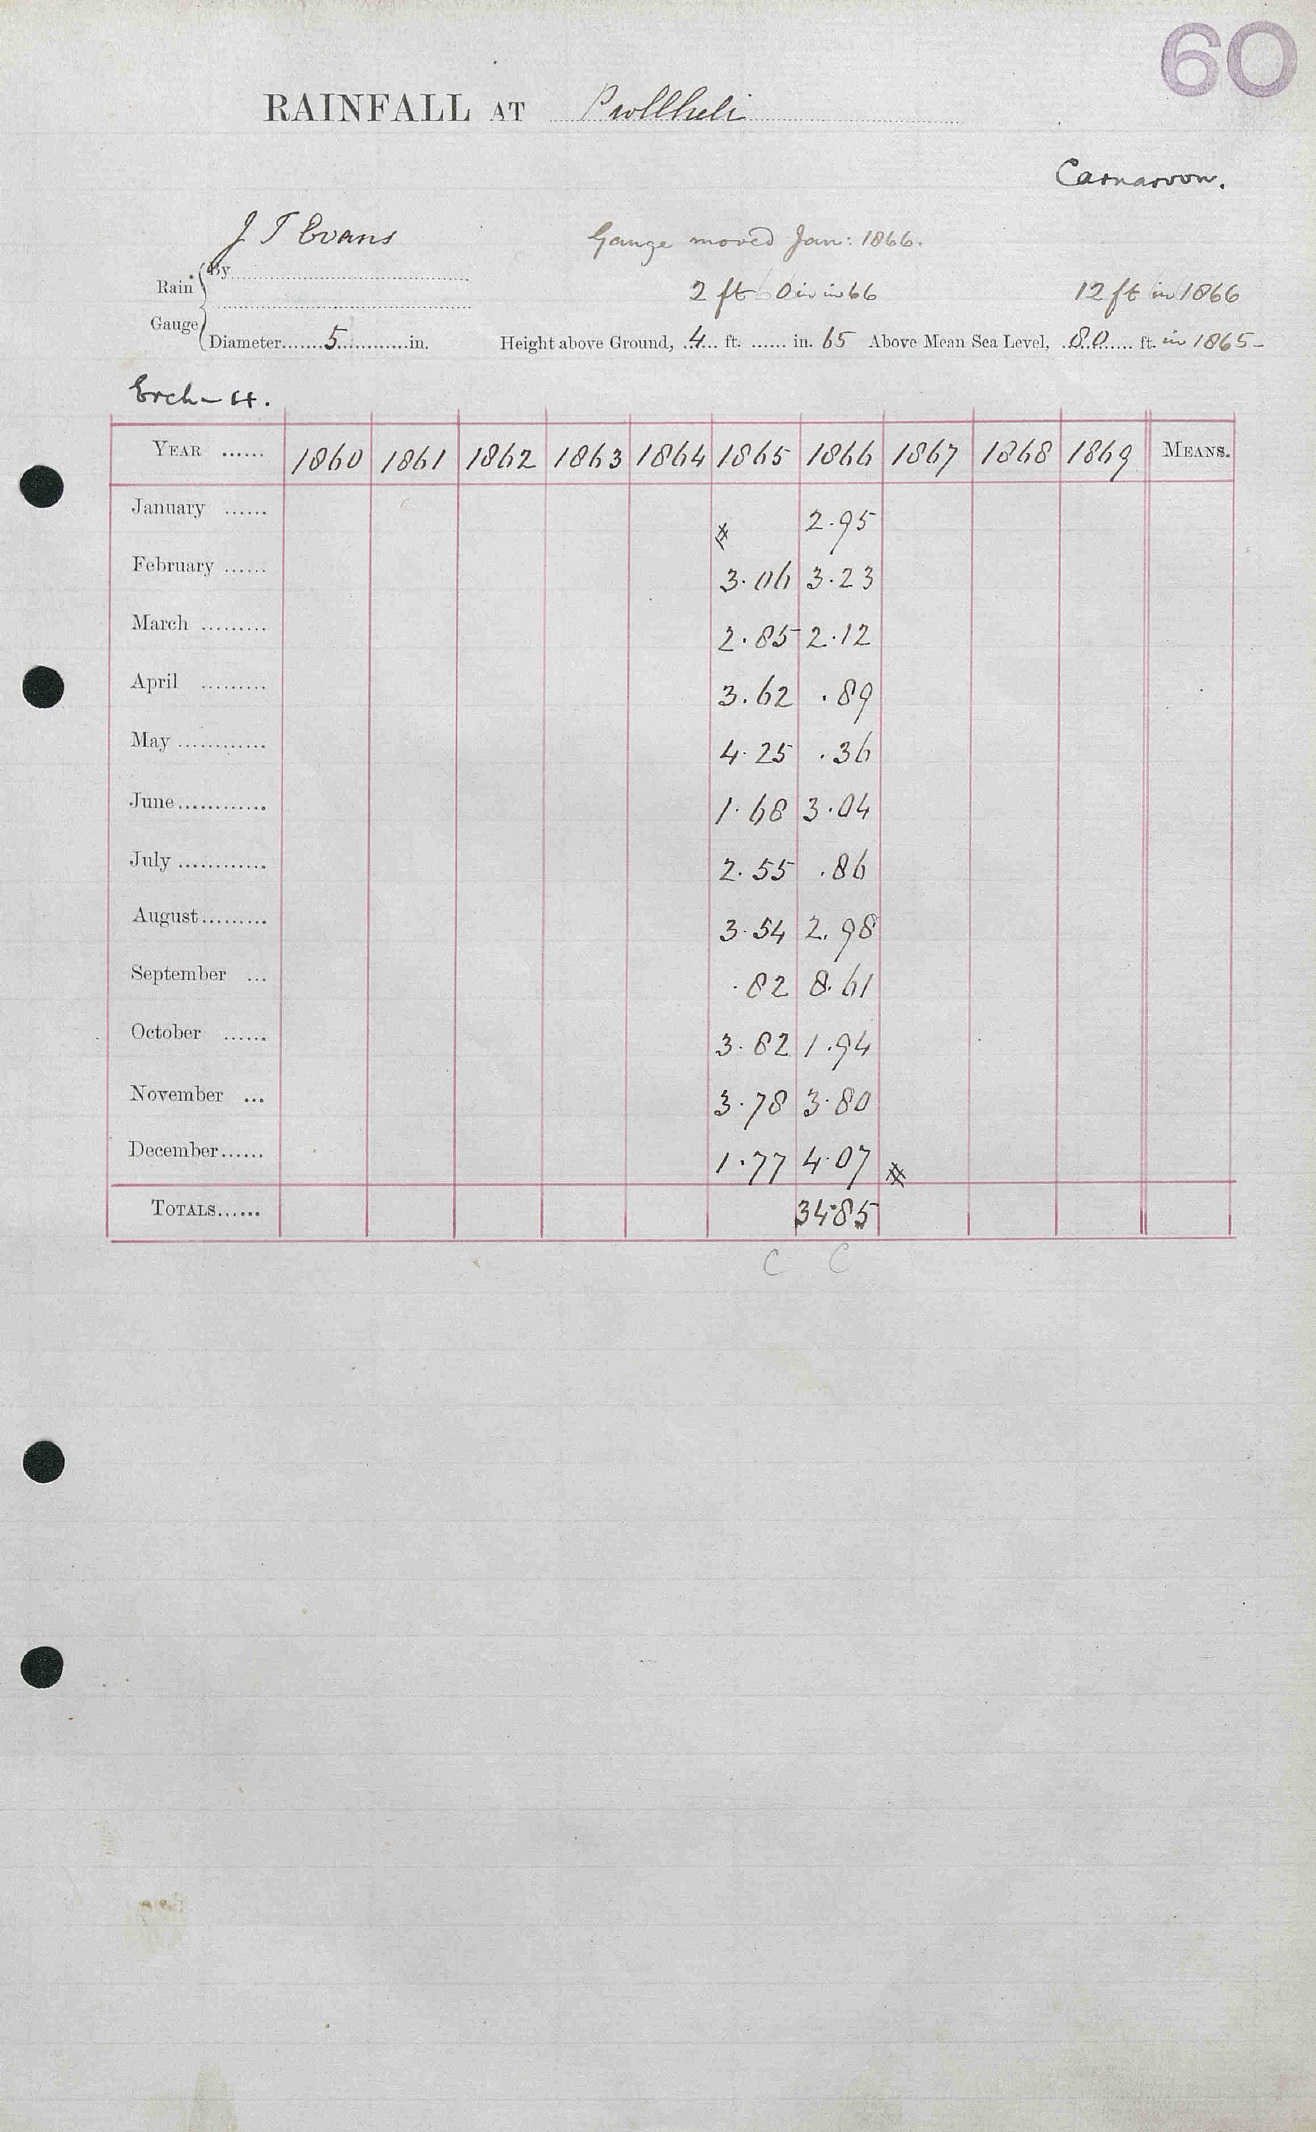 60
RAINFALL AT Pwllheli
Carnarvon.
J T Evans
Gauge moved Jan: 1866.
By
Rain
2 ft 0 in in 66
12 ft in 1866
Gauge
Diameter.......5............in.
Height above Ground, 4 ft. ...... in. 65 Above Mean Sea Level, 80 ft. in 1865
Erch-
YEAR ...... 1860 1861 1862 1863 1864 1865 1866 1867 1868 1869 MEANS.
January ...... # 2.95
February ...... 3.06 3.23
March ......... 2.85 2.12
April ......... 3.62 .89
May ............ 4.25 .36
June............ 1.68 3.04
July ............ 2.55 .86
August......... 3.54 2.98
September ... .82 8.61
October ...... 3.82 1.94
November ... 3.78 3.80
December...... 1.77 4.07 #
TOTALS...... 34.85
C C